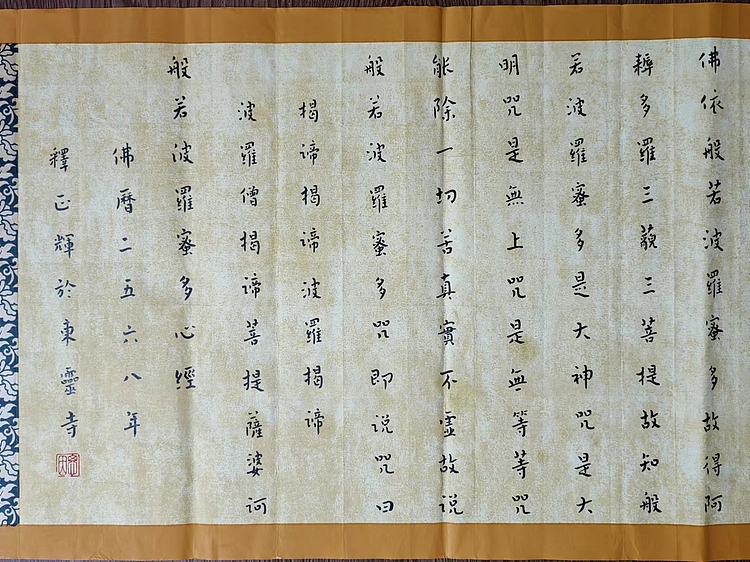 佛依般若波羅蜜多故得阿
耨多羅三藐三菩提故知般
若波羅蜜多是大神咒是大
明咒是無上咒是無等等咒
能除一切苦真實不虛故说
般若波羅蜜多咒即说咒曰
揭諦揭諦波羅揭諦
波羅僧揭諦菩提薩婆訶
般若波羅蜜多心經
佛曆二五六八年
釋正輝於東靈寺